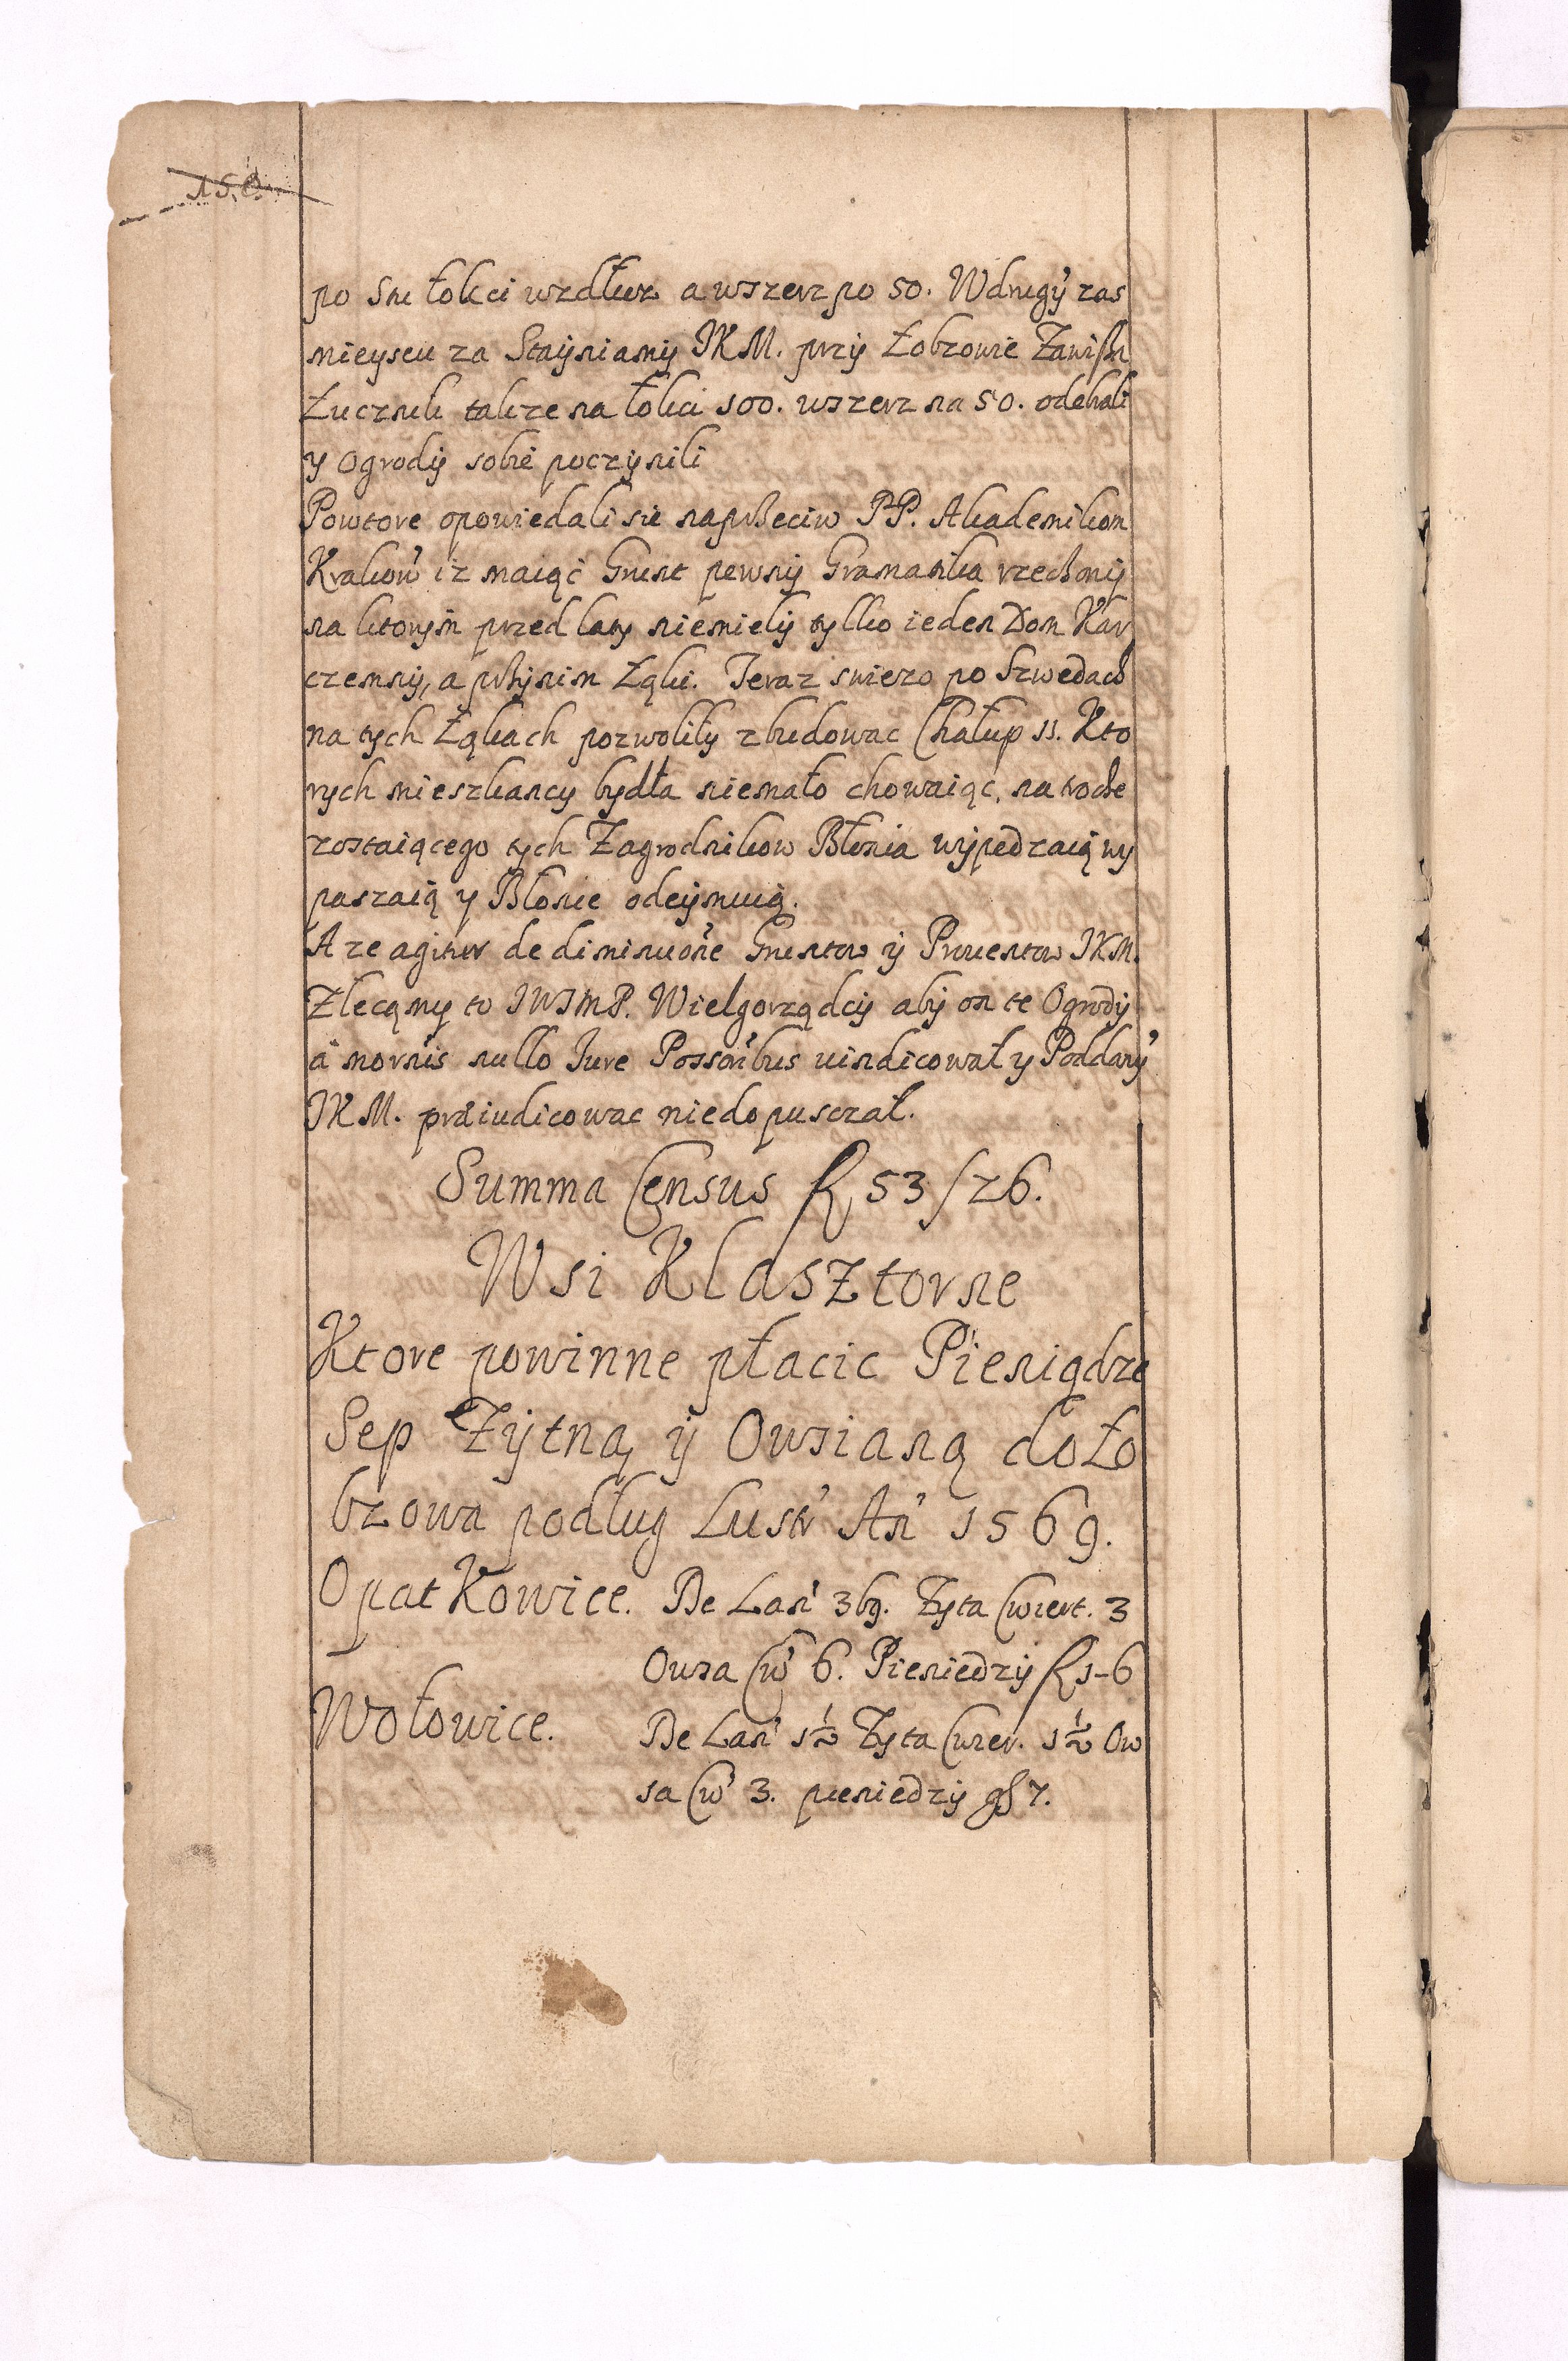 150.
po Stu łokci wzdłuz a wszerz po 50. W drugÿ zas
mieyscu za Stayniamÿ JKM. przÿ Łobzowie Zawisza
Łucznik takze na łokci 100. wszerz na 50. odebrali
y Ogrodÿ sobie poczÿnili
Powtore opowiedali sie naprzeciw PP. Akademikom
Kraków iz maiąc Grunt pewnÿ Gramatika rzeczonÿ
na ktorÿm przed laty niemielÿ tylko ieden Dom Kar
czemnÿ, a przÿnim Łąki. Teraz swiezo po Szwedach
na tych Łąkach pozwolilÿ zbudowac Chałup 11. Kto
rych mieszkancy bydła niemało chowaiąc, na troche
zostaiącego tych Zagrodnikow Błonia wÿpedzaią wy
paszaią y Błonie odeÿmuią.
A ze agitur de diminuoñe Gruntow ÿ Prouentow JKM.
Zlecamy to JWJmP. Wielgorządcÿ abÿ on te Ogrodÿ
á nullo Jure Possoribus uindicował y Poddanÿ
JKM. præiudicowac niedopusczał.
Summa Census fl 53/26.
Wsi Klasztorne
Ktore powinne płacic Pieniądze
Sep Zÿtną ÿ Owsianą do Ło
bzowa podług Lustr An 1569.
Opatkowice. De Lan 3 Zyta Cwiert. 3
Owsa Cw 6. Pieniedzÿ fl 1-6
Wołowice. De Lan 1½ Zyta Cwier. 1½ Ow
sa Cw 3. pieniedzÿ gr 7.